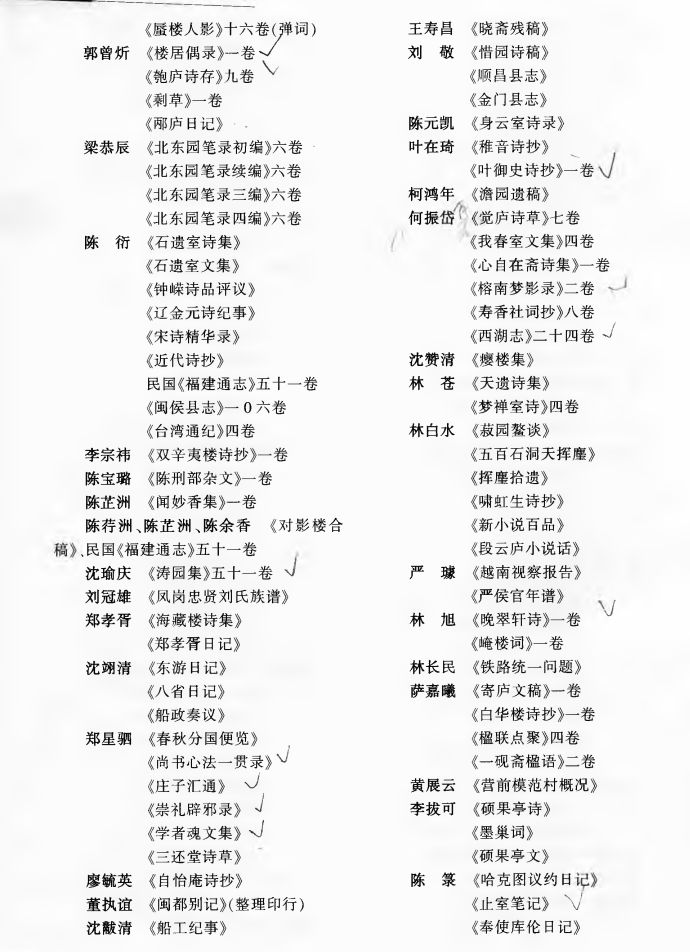 《蜃楼人影》十六卷(弹词)
郭曾炘 《楼居偶录》一卷
《匏庐诗存》九卷
《剩草》一卷
《邴庐日记》
梁恭辰 《北东园笔录初编》六卷
《北东园笔录续编》六卷
《北东园笔录三编》六卷
《北东园笔录四编》六卷
陈 衍 《石遗室诗集》
《石遗室文集》
《钟嵘诗品评议》
《辽金元诗纪事》
《宋诗精华录》
《近代诗抄》
民国《福建通志》五十一卷
《闽侯县志》一0六卷
《台湾通纪》四卷
李宗祎 《双辛夷楼诗抄》一卷
陈宝璐 《陈刑部杂文》一卷
陈芷洲 《闻妙香集》一卷
陈荇洲、陈芷洲、陈余香 《对影楼合
稿》、民国《福建通志》五十一卷
沈瑜庆 《涛园集》五十一卷
刘冠雄 《凤岗忠贤刘氏族谱》
郑孝胥 《海藏楼诗集》
《郑孝胥日记》
沈翊清 《东游日记》
《八省日记》
《船政奏议》
郑星驷 《春秋分国便览》
《尚书心法一贯录》
《庄子汇通》
《崇礼辟邪录》
《学者魂文集》
《三还堂诗草》
廖毓英 《自怡庵诗抄》
董执谊 《闽都别记》(整理印行)
沈黻清 《船工纪事》
王寿昌 《晓斋残稿》
刘 敬 《惜园诗稿》
《顺昌县志》
《金门县志》
陈元凯 《身云室诗录》
叶在琦 《稚音诗抄》
《叶御史诗抄》一卷
柯鸿年 《澹园遗稿》
何振岱 《觉庐诗草》七卷
《我春室文集》四卷
《心自在斋诗集》一卷
《榕南梦影录》二卷
《寿香社词抄》八卷
《西湖志》二十四卷
沈赞清 《瘿楼集》
林 苍 《天遗诗集》
《梦禅室诗》四卷
林白水 《菽园赘谈》
《五百石洞天挥麈》
《挥麈拾遗》
《啸虹生诗抄》
《新小说百品》
《段云庐小说话》
严 璩 《越南视察报告》
《严侯官年谱》
林 旭 《晚翠轩诗》一卷
《崦楼词》一卷
林长民 《铁路统一问题》
萨嘉曦 《寄庐文稿》一卷
《白华楼诗抄》一卷
《楹联点聚》四卷
《一砚斋楹语》二卷
黄展云 《营前模范村概况》
李拔可 《硕果亭诗》
《墨巢词》
《硕果亭文》
陈 箓 《哈克图议约日记》
《止室笔记》
《奉使库伦日记》